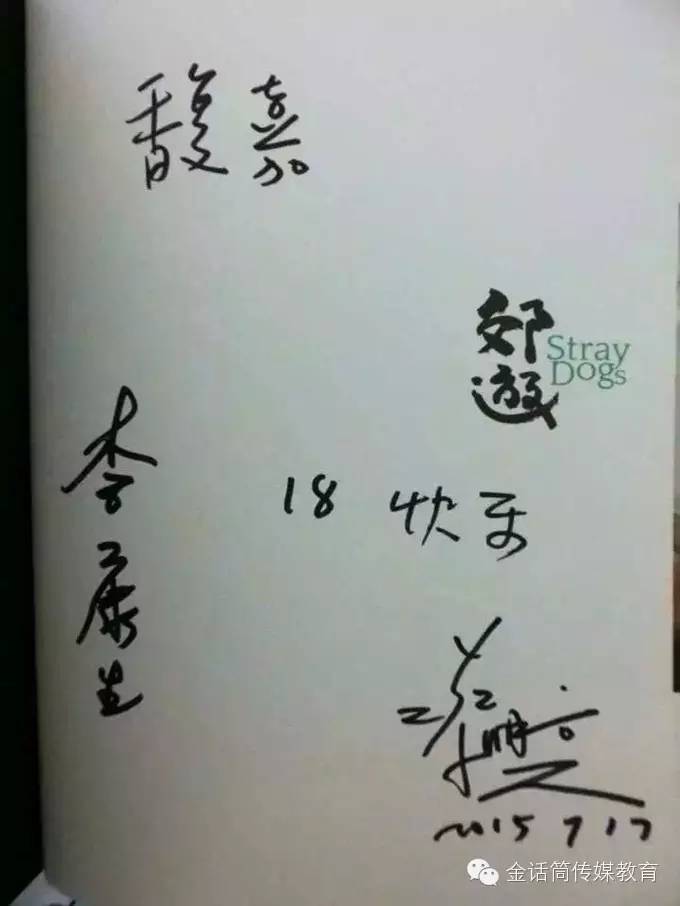 馥嘉
郊遊
Stray
Dogs
18 快乐
李康生
蔡明亮
2015 7 17
金话筒传媒教育